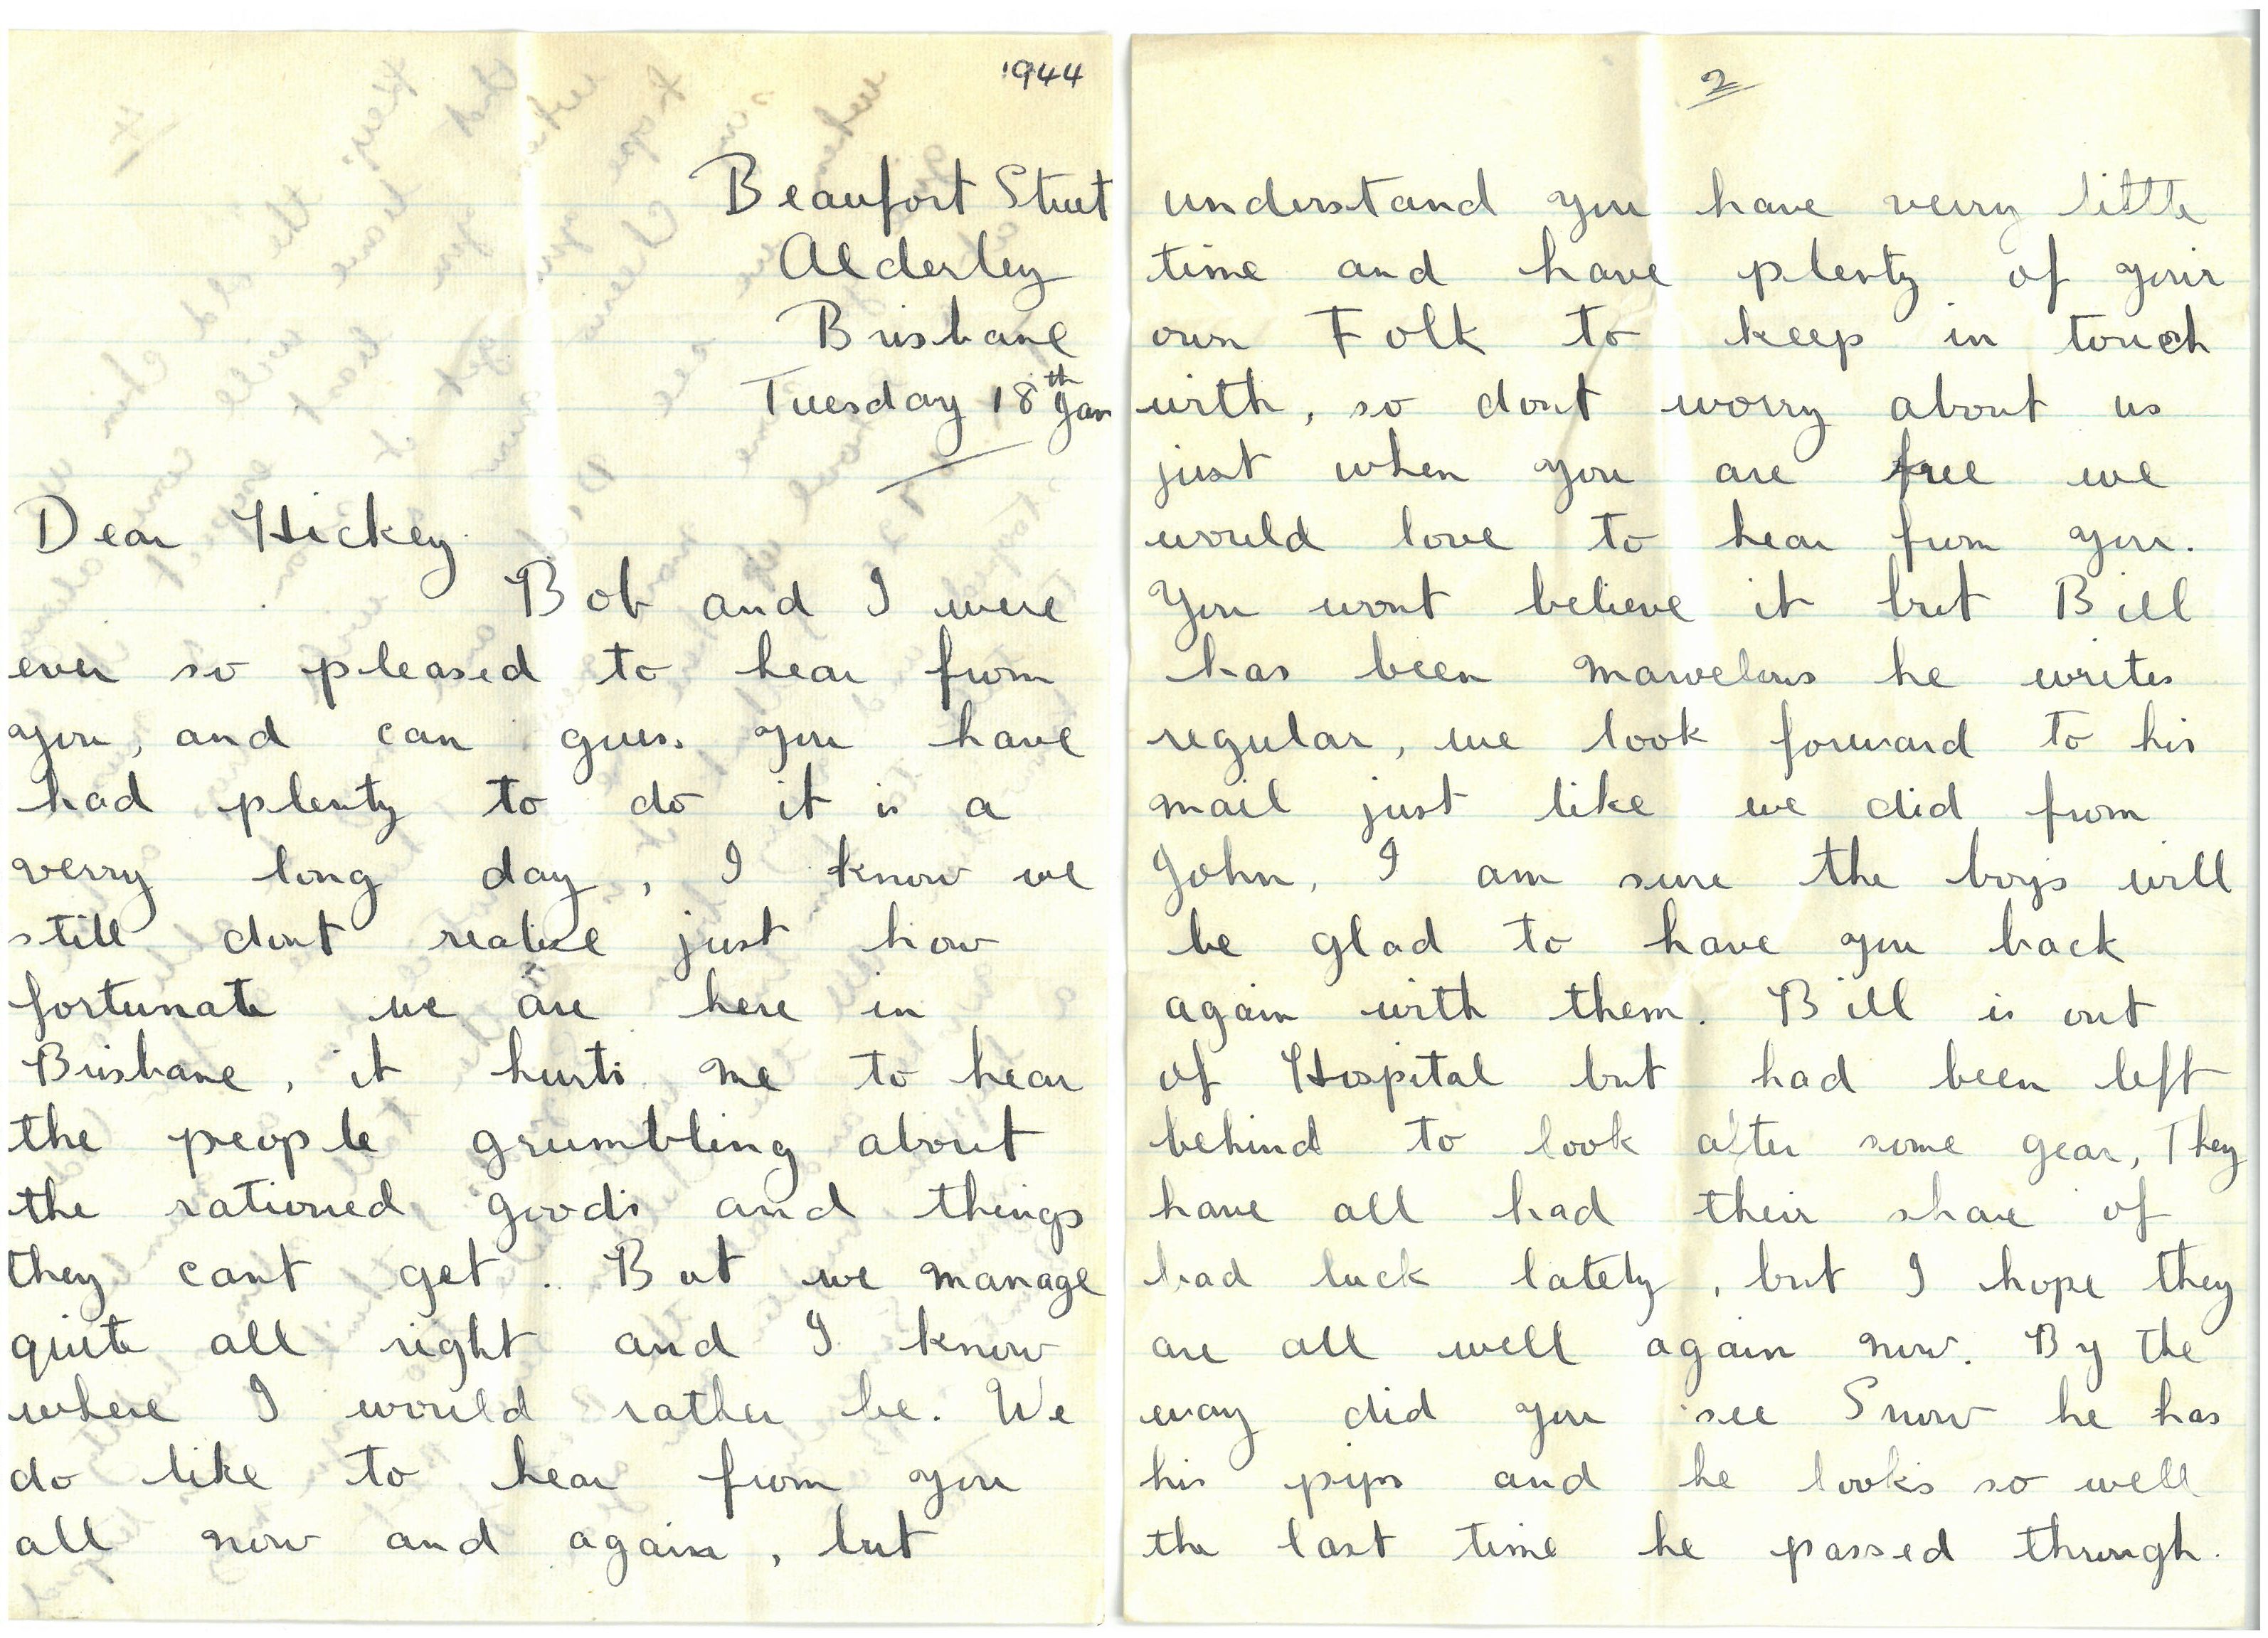 1944
Beaufort Street
Alderley
Brisbane
Tuesday 18th Jan
Dear Hickey.
Bob and I were
ever so pleased to hear from
you, and can guess you have
had plenty to do it is a
verry long day, I know we
still dont realise just how
fortunate we are here in
Brisbane, it hurts me to hear
the people grumbling about
the rationed goods and things
they cant get. But we manage
quite all right and I know
where I would rather be. We
do like to hear from you
all now and again, but
2
understand you have verry little
time and have plenty of your
own Folk to keep in touch
with, so dont worry about us
just when you are free we
would love to hear from you.
You wont believe it but Bill
has been marvelous he writes
regular, we look forward to his
mail just like we did from
John, I am sure the boys will
be glad to have you back
again with them. Bill is out
of Hospital but had been left
behind to look after some gear, They
have all had their share of
bad luck lately, but I hope they
are all well again now. By the
way did you see Snow he has
his pips and he looks so well
the last time he passed through.